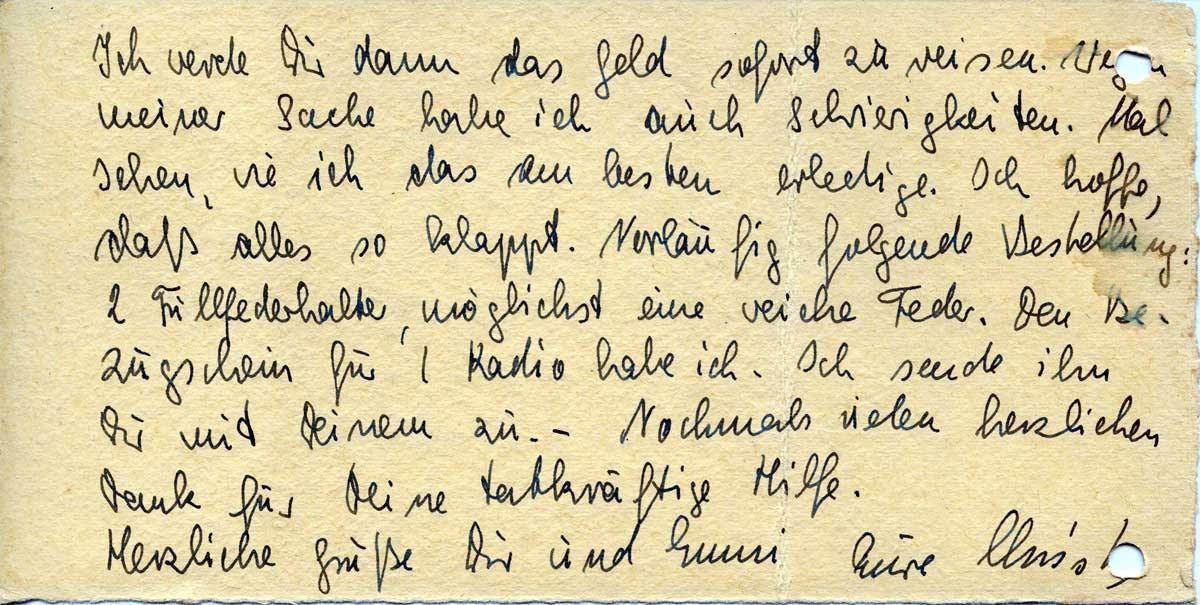 Ich werde Dir dann das Geld sofort zu weisen. Wegen
meiner Sache habe ich auch Schwierigkeiten. Mal
sehen, wie ich das am besten erledige. Ich hoffe,
daß alles so klappt. Vorläufig folgende Bestellung:
2 Füllfederhalter, möglichst eine weiche Feder. Den Be-
zugschein für 1 Radio habe ich. Ich sende ihn
Dir mit Deinem zu. – Nochmals vielen herzlichen
Dank für Deine tatkräftige Hilfe.
Herzliche Grüße Dir und Emmi Eure